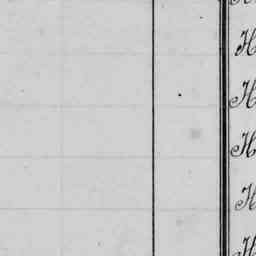 H
H
H
H
H